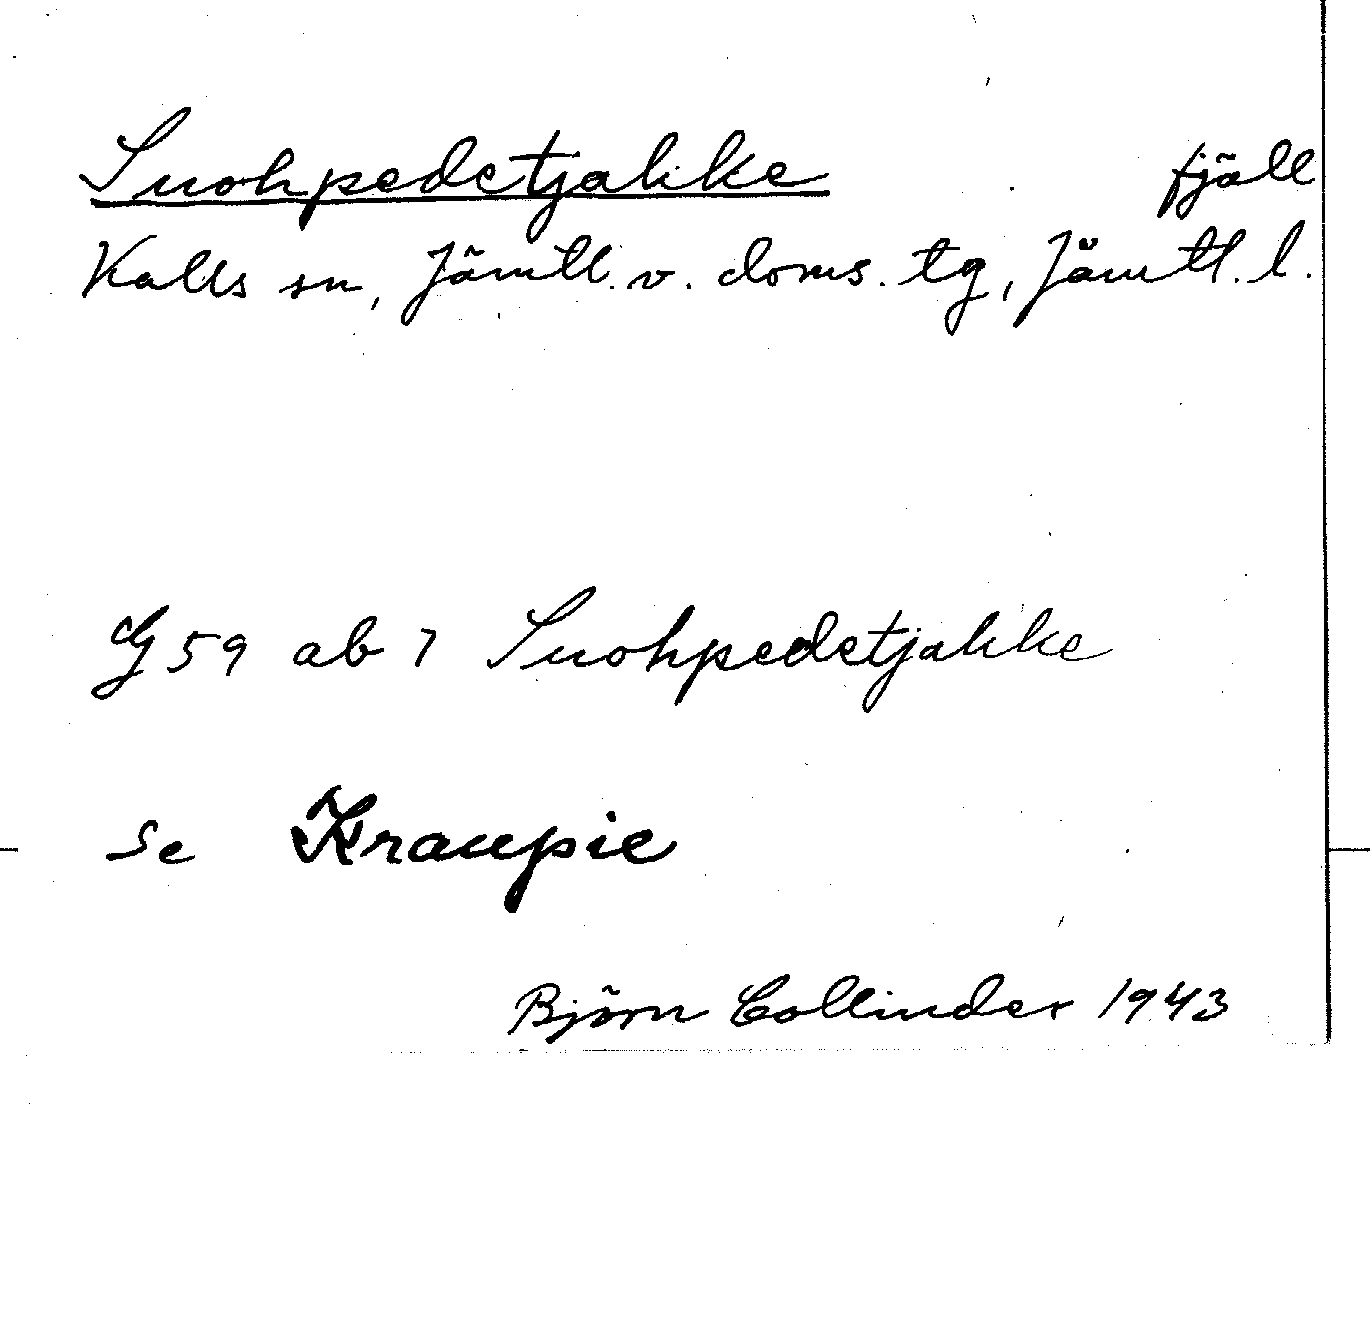 Suohpedetjakke fjäll
Kalls sn, Jämtl. v. doms. tg, Jämtl. l.
G 59 ab 7 Suohpedetjakke
se Kraupie
Björn Collinder 1943